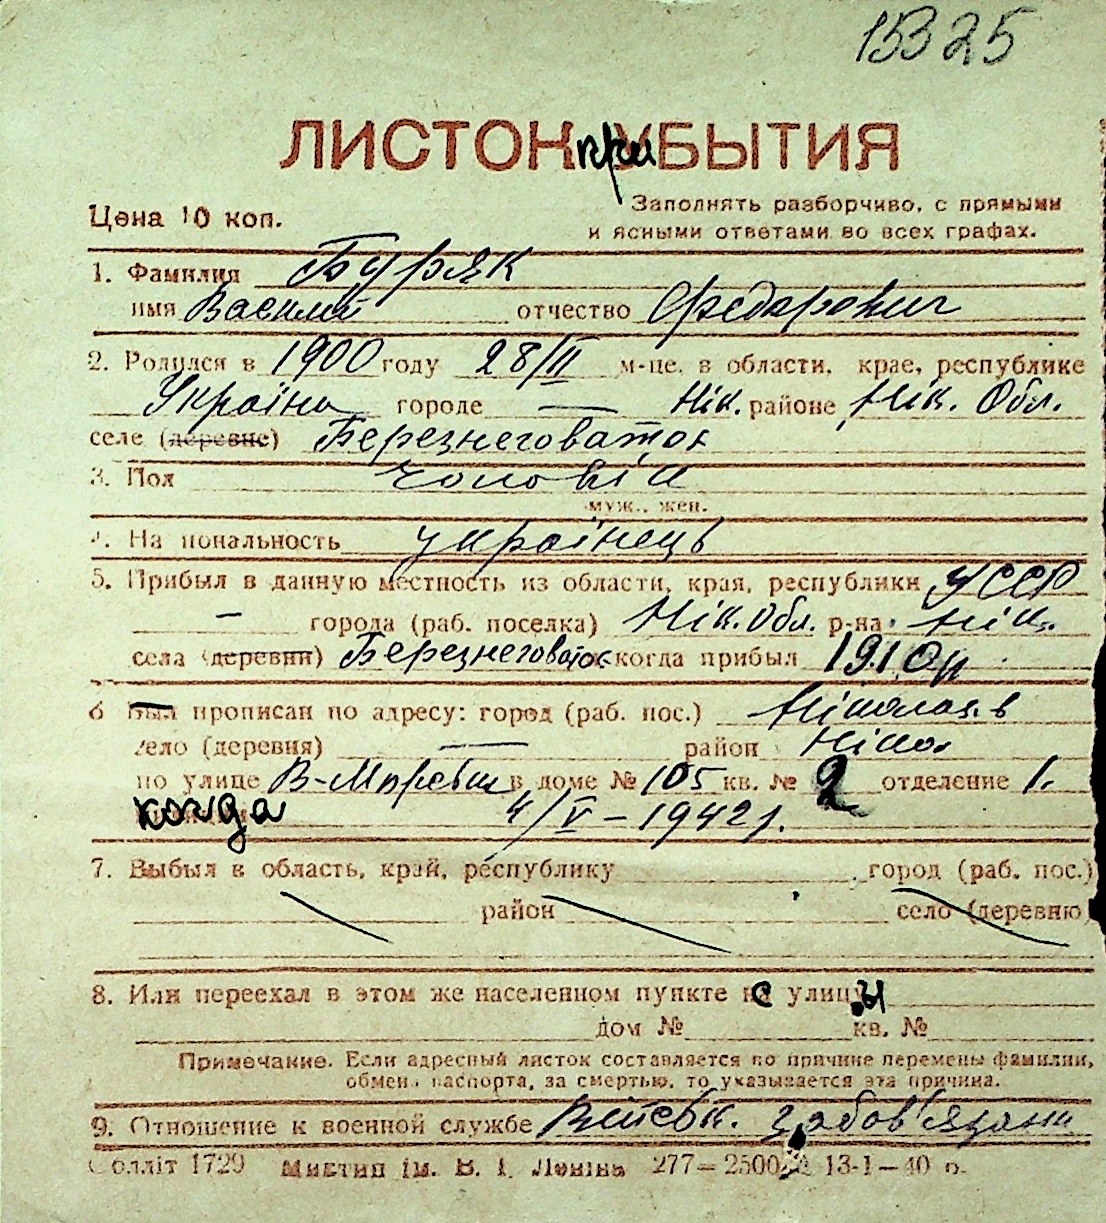 15325
ЛИСТОК прибЫТИЯ
Цена 10 коп.
Заполнять разборчиво, с прямыми
и ясными ответами во всех графах.
1. Фамилия Буряк
имя Василий отчество Федорович
2. Родился в 1900 году 28/II м-це, в области, крае, республике
Україна городе — Нік. районе Нік. Обл.
селе (деревне) Березнеговаток
3. Пол чоловік
муж., жен.
4. Национальность українець
5. Прибыл в данную местность из области, края, республики УССР
— города (раб. поселка) Нік. Обл. р-на Нік.
села (деревни) Березнеговаток когда прибыл 1910р
6 Был прописан по адресу: город (раб. пос.) Ніколаєв
село (деревня) — район Нікол.
по улице в доме № 105 кв. № 2 отделение 1.
когда 4/V – 1942 г.
7. Выбыл в область, край, республику город (раб. пос.)
район село (деревню)
8. Или переехал в этом же населенном пункте с улицы
дом № кв. №
Примечание. Если адресный листок составляется по причине перемены фамилии,
обмена паспорта, за смертью, то указывается эта причина.
9. Отношение к военной службе Військ. забов'язани
Облліт 1729 Миктип ім. В. І. Леніна 277—2500 13-1—40 р.